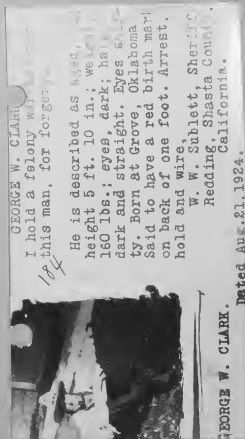 GEORGE W. CLARK
I hold a felony
this man, for
He is described as aged,
height 5 ft. 10 in.;
160 lbs.; eyes, dark;
dark and straight. Eyes
ty. Born at Grove, Oklahoma
Said to have a red birth mark
on back of one foot. Arrest,
hold and wire,
W. W. Sublett, Sheriff
Redding, Shasta County,
California.
184
GEORGE W. CLARK.
Dated Aug.21,1924.